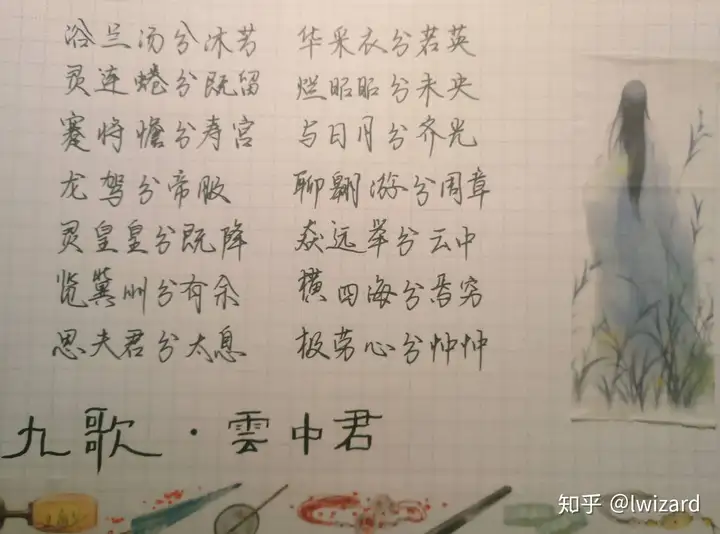 浴兰汤兮沐芳 华采衣兮若英
灵连蜷兮既留 烂昭昭兮未央
蹇将憺兮寿宫 与日月兮齐光
龙驾兮帝服 聊翱游兮周章
灵皇皇兮既降 猋远举兮云中
览冀州兮有余 横四海兮焉穷
思夫君兮太息 极劳心兮忡忡
九歌·雲中君
知乎 @lwizard